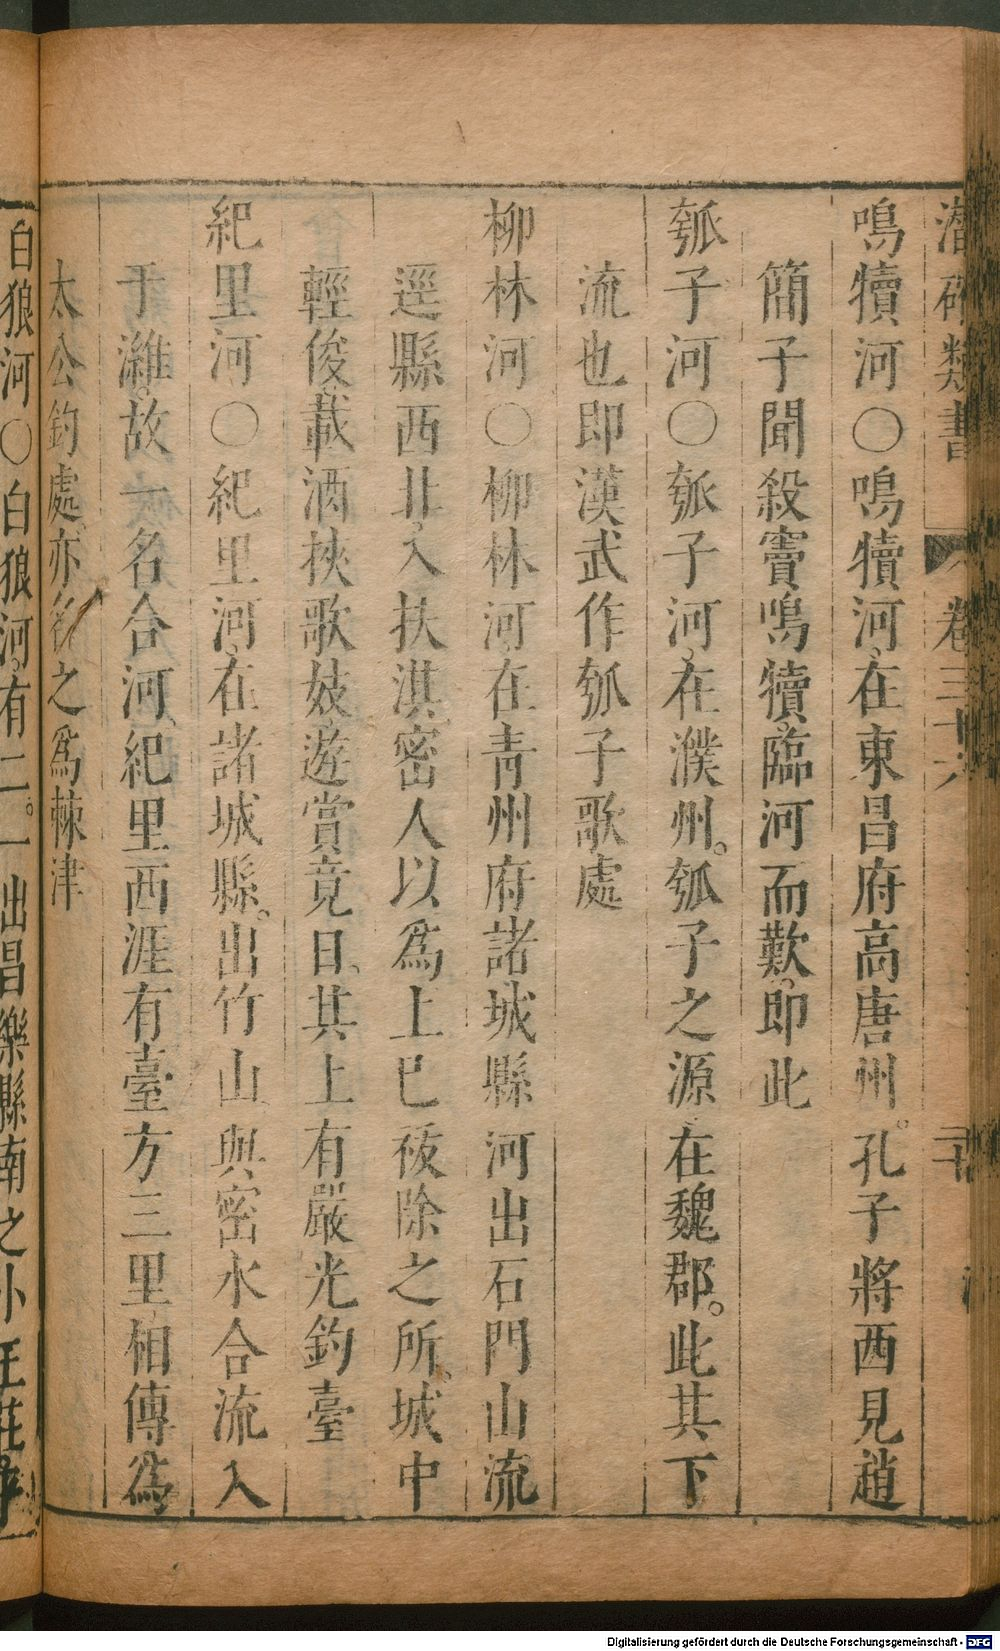 潛確類書 卷三十六
鳴犢河○鳴犢河在東昌府高唐州。孔子將西見趙
簡子聞殺竇鳴犢臨河而歎即此
瓠子河○瓠子河在濮州。瓠子之源在魏郡。此其下
流也即漢武作瓠子歌處
柳林河○柳林河在青州府諸城縣河出石門山流
逕縣西北入扶淇密人以爲上巳祓除之所。城中
輕俊載酒挾歌妓遊賞竟日其上有嚴光釣臺
紀里河○紀里河在諸城縣。出竹山與密水合流入
于濰故一名合河紀里西涯有臺方三里相傳爲
太公釣處亦名之爲棘津
白狼河○白狼河有二。一出昌樂縣南之小王莊
Digitalisierung gefördert durch die Deutsche Forschungsgemeinschaft - DFG